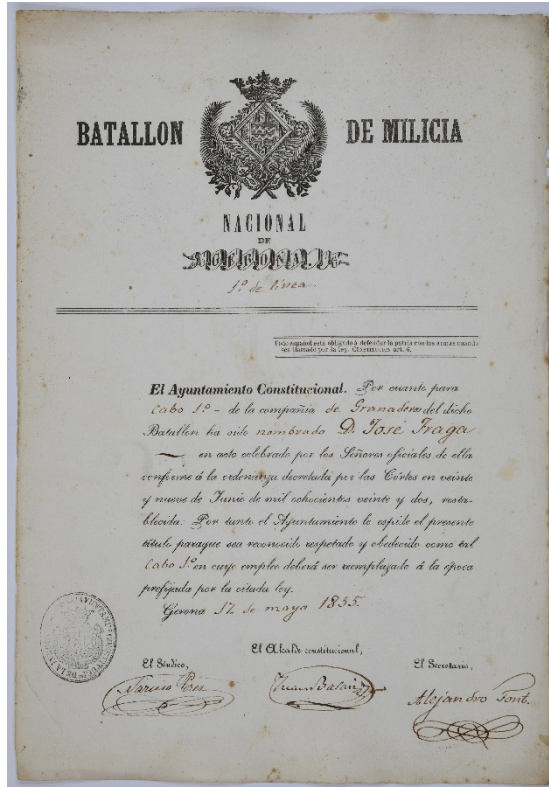 BATALLON DE MILICIA
NACIONAL
DE
1º de línea.
Todo español está obligado á defender la patria con las armas cuando
sea llamado por la ley. Constitucion art. 6.
El Ayuntamiento Constitucional. Por cuanto para
Cabo 1º - de la compañia de Granaderos del dicho
Batallon ha sido nombrado D. José Fraga
en acto celebrado por los Señores oficiales de ella
conforme á la ordenanza decretada por las Córtes en veinte
y nueve de Junio de mil ochocientos veinte y dos, resta-
blecida: Por tanto el Ayuntamiento le espide el presente
título paraque sea reconocido respetado y obedecido como tal
Cabo 1º en cuyo empleo deberá ser reemplazado á la época
prefijada por la citada ley.
Gerona 17 de mayo 1855.
El Síndico,
El Alcalde constitucional,
El Secretario,
Narciso Perez
Juan
Alejandro Font.